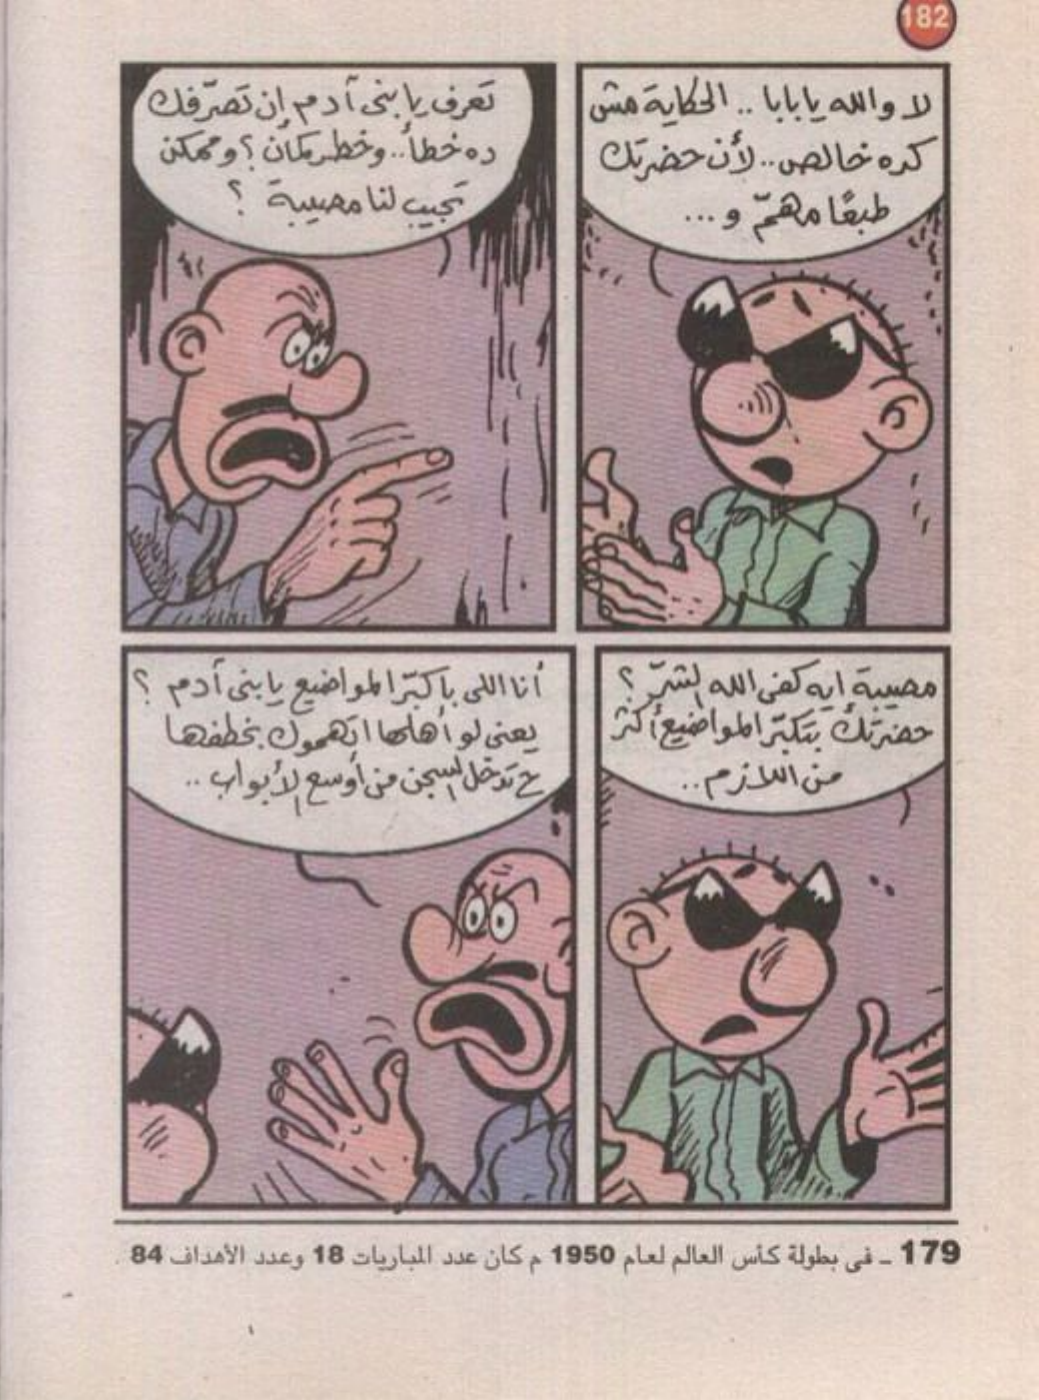 182
لا والله يا بابا .. الحكاية مش
كده خالص .. لأن حضرتك
طبعًا مهمّ و ...
تعرف يا بنى آدم إن تصرّفك
ده خطأ .. وخطر كمان ؟ وممكن
تجيب لنا مصيبة ؟
مصيبة ايه كفى الله الشرّ ؟
حضرتك بتكبّر المواضيع أكثر
من اللازم ..
أنا اللى باكبّر المواضيع يا بنى آدم ؟
يعنى لو أهلها اتهموك بخطفها
ح تدخل السجن من أوسع الأبواب ..
179 ـ فى بطولة كأس العالم لعام 1950 م كان عدد المباريات 18 وعدد الأهداف 84 .